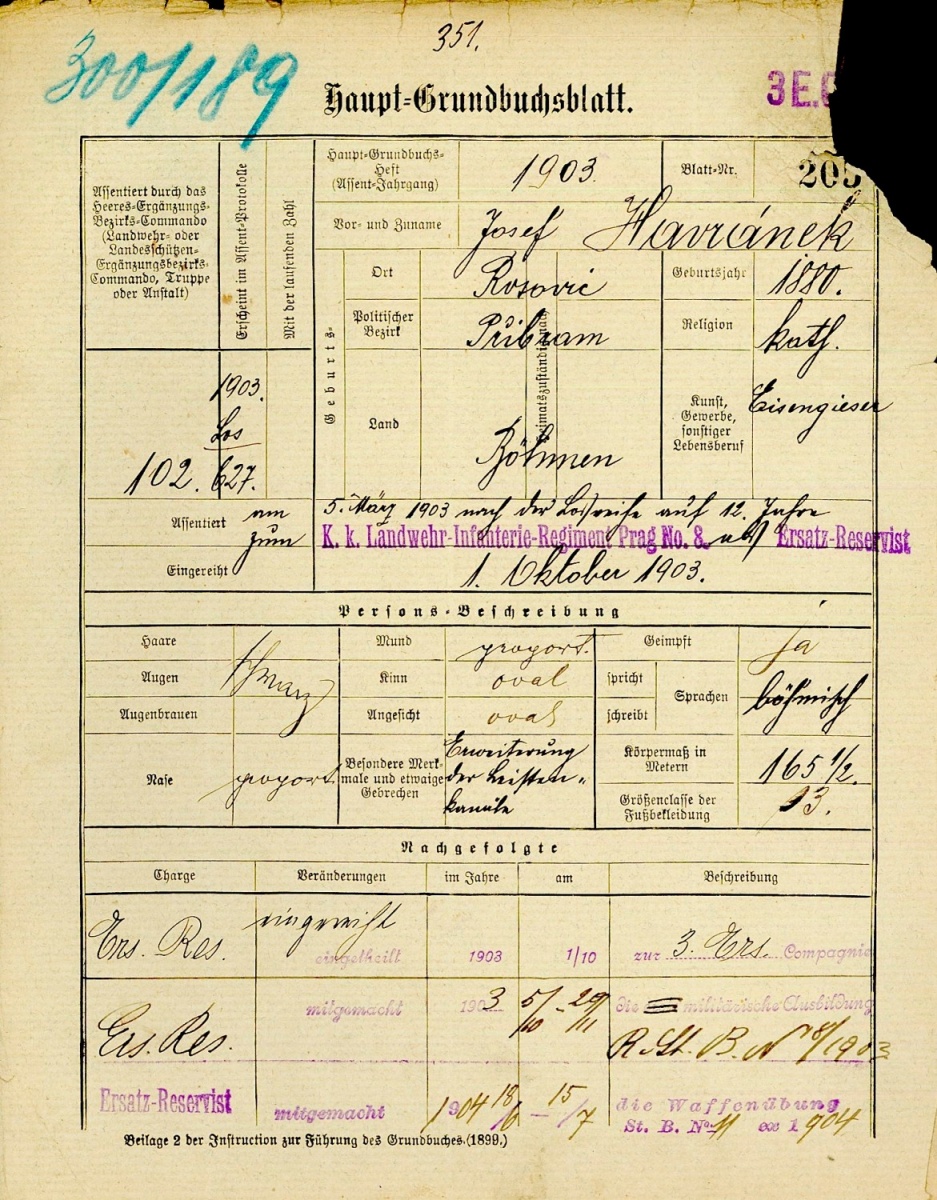 351.
300/189
Haupt-Grundbuchsblatt.
3E.
Assentiert durch das
Heeres-Ergänzungs-
Bezirks-Commando
(Landwehr- oder
Landesschützen-
Ergänzungsbezirks-
Commando, Truppe
oder Anstalt)
Erscheint im Assent-Protokolle
Mit der laufenden Zahl
Haupt-Grundbuchs-
Heft
(Assent-Jahrgang)
1903.
Blatt-Nr.
205
Vor- und Zuname
Josef Havránek
Geburts-
Ort
Rosovic
Geburtsjahr
1880.
Politischer
Bezirk
Přibram
Heimatszuständig
Religion
kath.
Land
Böhmen
Kunst,
Gewerbe,
sonstiger
Lebensberuf
Eisengieser
1903.
Los
102. 627.
Assentiert am
5. März 1903 nach der Losreihe auf 12. Jahre
zum
K. k. Landwehr-Infanterie-Regiment Prag No. 8. als Ersatz-Reservist
Eingereiht
1. Oktober 1903.
Persons-Beschreibung
Haare
Augen
Augenbrauen
schwarz
Nase
proport.
Mund
proport.
Kinn
oval
Angesicht
oval
Besondere Merk-
male und etwaige
Gebrechen
Erweiterung
der Leisten-
kanäle
Geimpft
ja
spricht
schreibt
Sprachen
böhmisch
Körpermaß in
Metern
165 1/2.
Größenclasse der
Fußbekleidung
13.
Nachgefolgte
Charge Veränderungen im Jahre am Beschreibung
eingereiht
Ers. Res. eingetheilt 1903 1/10 zur 3. Ers. Compagnie
mitgemacht 1903 5/10 - 29/11 die militärische Ausbildung
Ers. Res. R. St. B. N 8/1903
Ersatz-Reservist mitgemacht 1904 18/6 - 15/7 die Waffenübung
St. B. No 11 ex 1904
Beilage 2 der Instruction zur Führung des Grundbuches.(1899.)